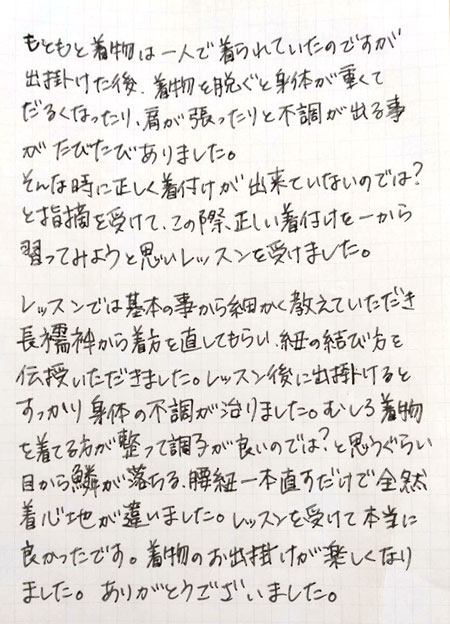 もともと着物は一人で着られていたのですが
出掛けた後、着物を脱ぐと身体が重くて
だるくなったり、肩が張ったりと不調が出る事
がたびたびありました。
そんな時に正しく着付けが出来ていないのでは?
と指摘を受けて、この際、正しい着付けを一から
習ってみようと思いレッスンを受けました。
レッスンでは基本の事から細かく教えていただき
長襦袢から着方を直してもらい、紐の結び方を
伝授いただきました。レッスン後に出掛けると
すっかり身体の不調が治りました。むしろ着物
を着てる方が整って調子が良いのでは?と思うぐらい
目から鱗が落ちる、腰紐一本直すだけで全然
着心地が違いました。レッスンを受けて本当に
良かったです。着物のお出掛けが楽しくなり
ました。ありがとうございました。